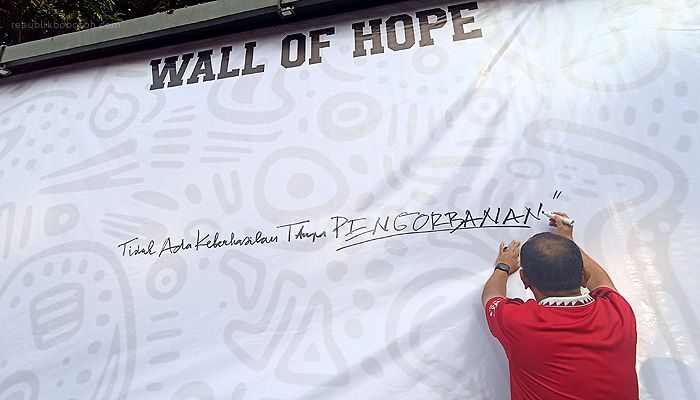 republikbobotoh.com
WALL OF HOPE
Tidak Ada Keberhasilan Tanpa PENGORBANAN"